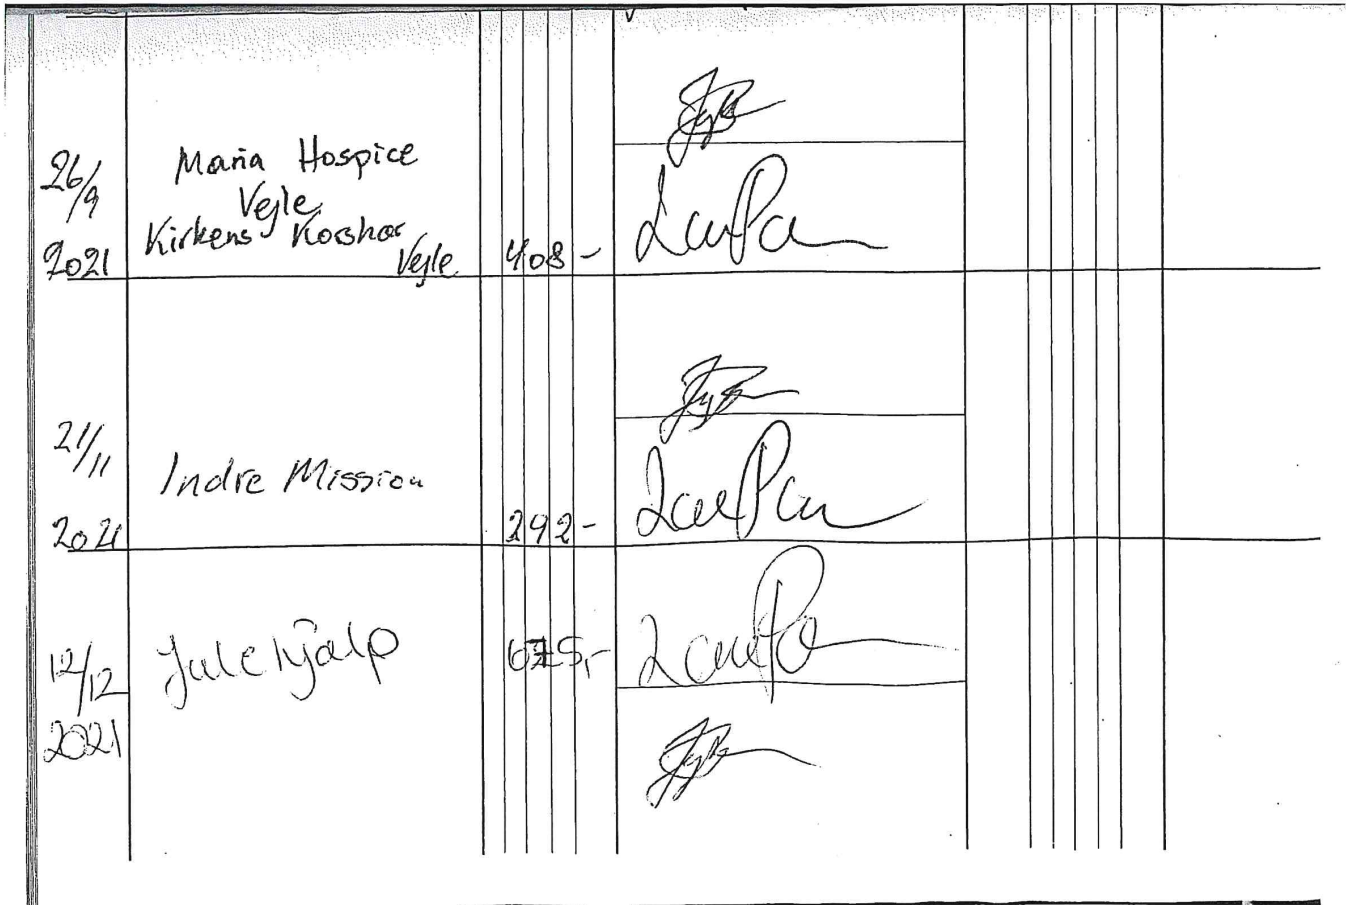 26/9
2021
Maria Hospice
Vejle
Kirkens Korshær
Vejle
408-
21/11
2021
Indre Mission
292-
12/12
2021
Julehjælp
675,-